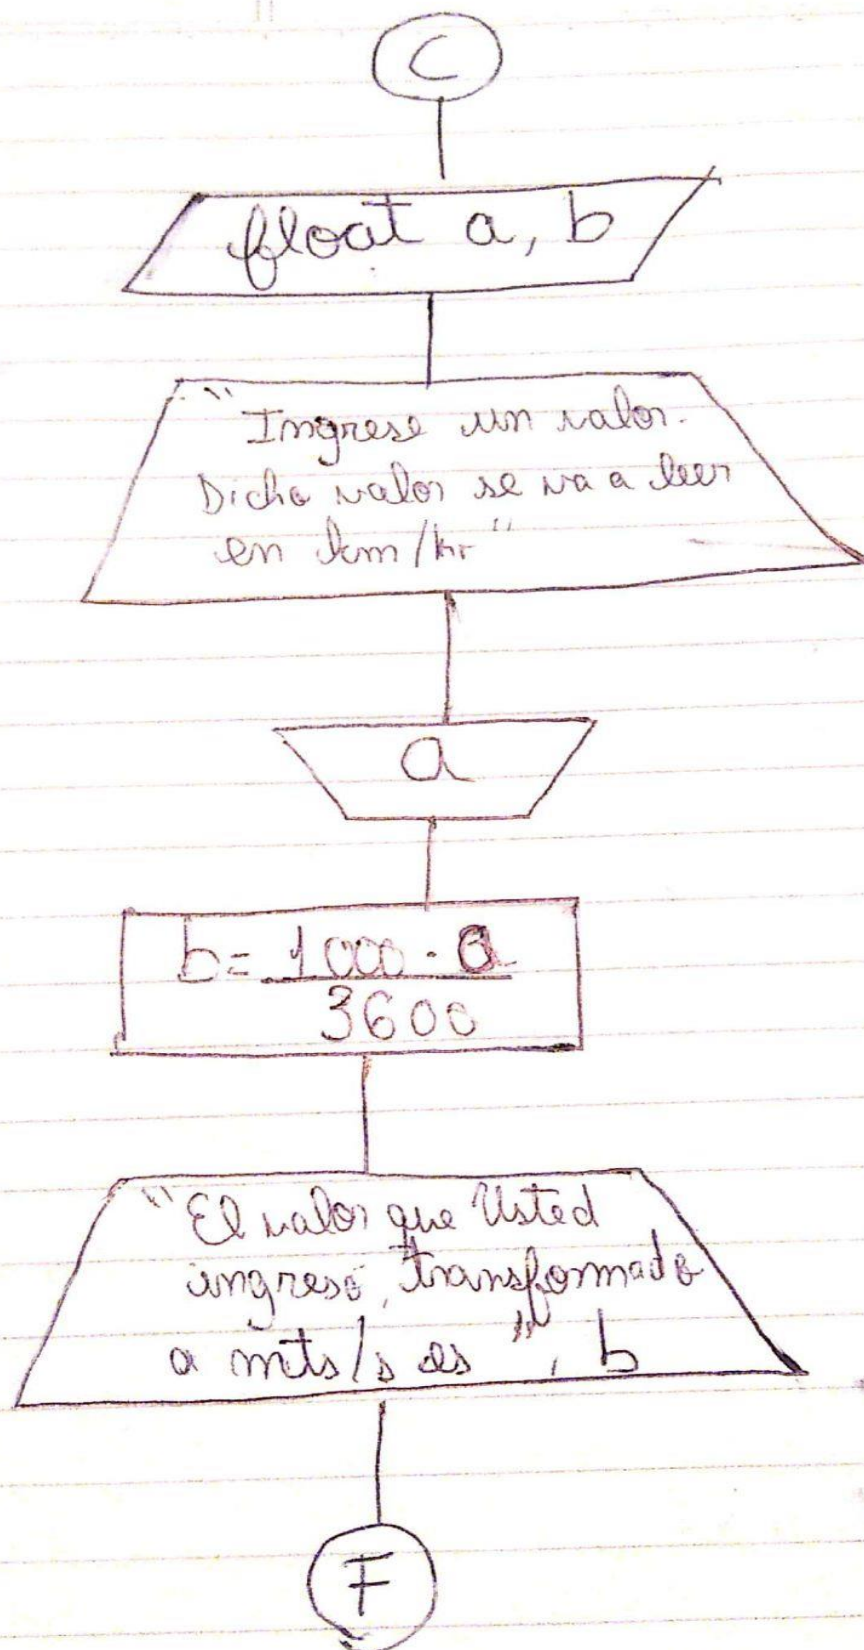 C
float a, b
"Ingrese un valor.
Dicho valor se va a leer
en km/hr"
a
b = 1000 · a
3600
"El valor que Usted
ingresó, transformado
a mts/s es", b
F